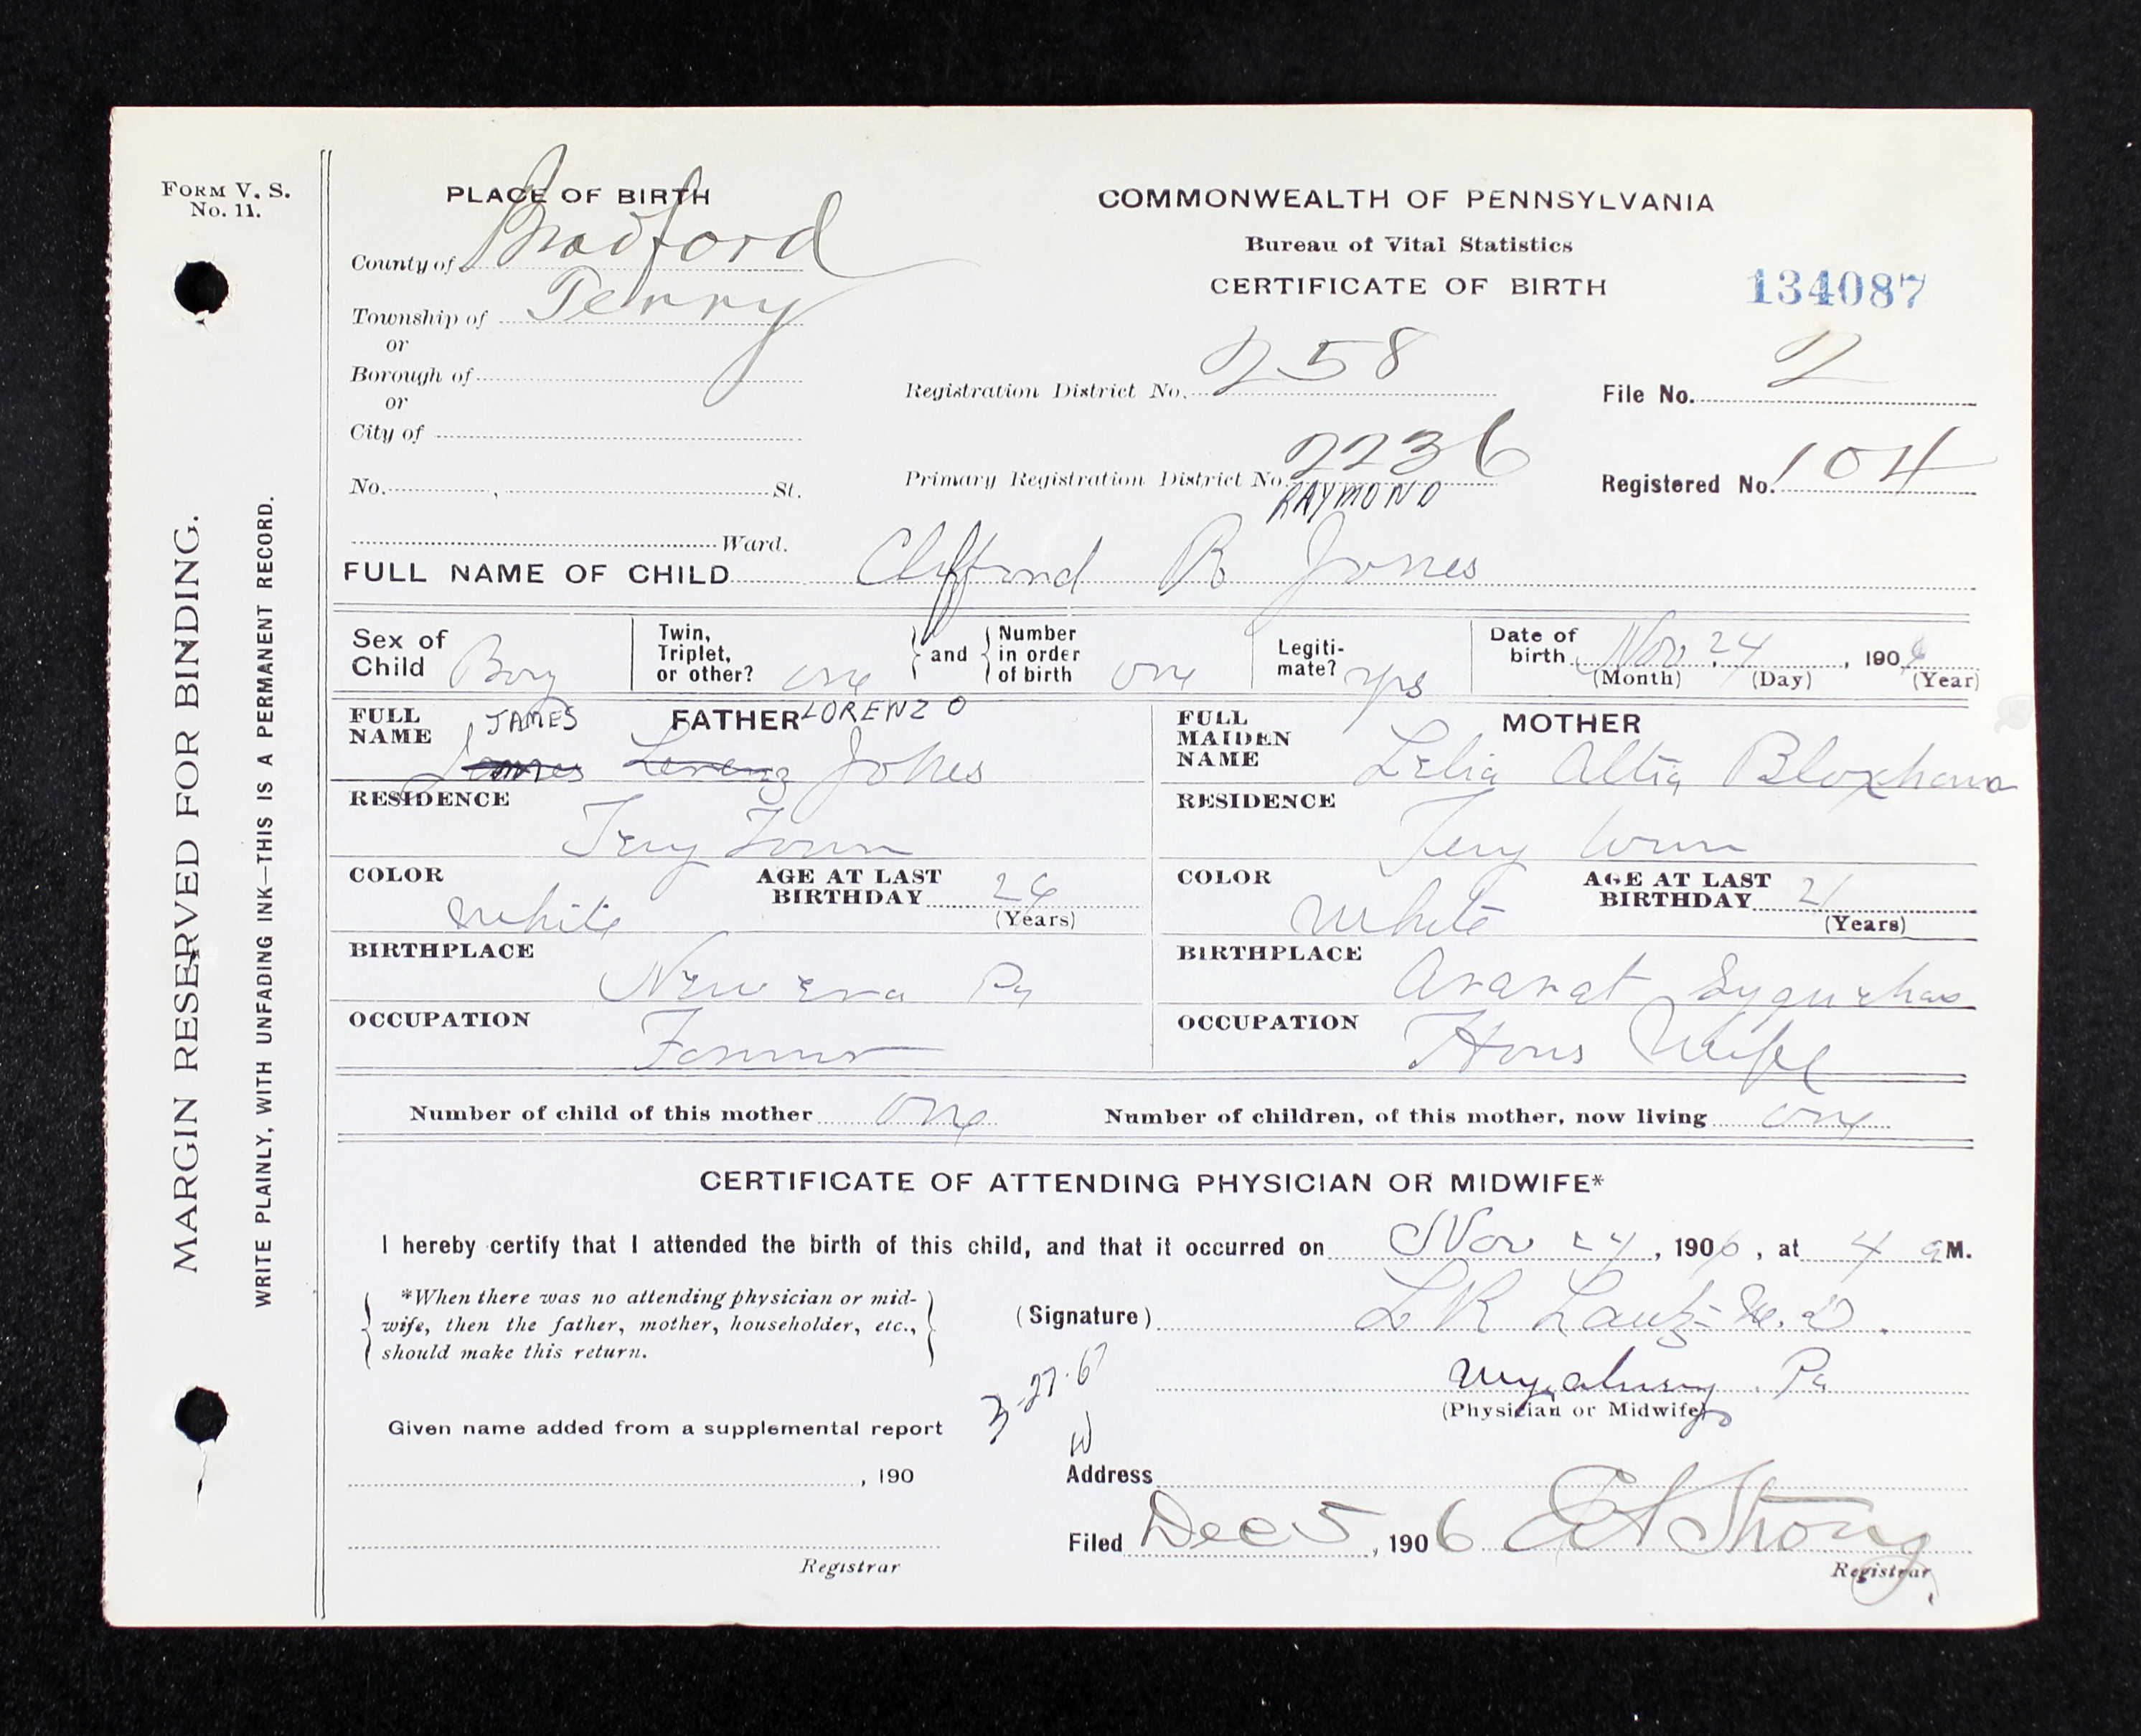 FORM V. S.
No. 11.
MARGIN RESERVED FOR BINDING.
WRITE PLAINLY, WITH UNFADING INK—THIS IS A PERMANENT RECORD.
PLACE OF BIRTH
County of Bradford
Township of Terry
or
Borough of
or
City of
No. , St.
Ward.
COMMONWEALTH OF PENNSYLVANIA
Bureau of Vital Statistics
CERTIFICATE OF BIRTH
134087
Registration District No. 258
File No. 2
Primary Registration District No. 2236
Registered No. 104
RAYMOND
FULL NAME OF CHILD Clifford R Jones
Sex of Child Boy
Twin, Triplet, or other? one
and
Number in order of birth one
Legitimate? yes
Date of birth Nov, 24, 1906
(Month) (Day) (Year)
FATHER
FULL NAME JAMES LORENZO
James Jones
RESIDENCE
Tery Town
COLOR
White
AGE AT LAST BIRTHDAY 26
(Years)
BIRTHPLACE
New era Pa
OCCUPATION
Farmer
MOTHER
FULL MAIDEN NAME
Lelia Altia Bloxham
RESIDENCE
Tery town
COLOR
White
AGE AT LAST BIRTHDAY 21
(Years)
BIRTHPLACE
Ararat
OCCUPATION
Hous Wife
Number of child of this mother one
Number of children, of this mother, now living one
CERTIFICATE OF ATTENDING PHYSICIAN OR MIDWIFE*
I hereby certify that I attended the birth of this child, and that it occurred on Nov 24, 1906, at 4 a M.
*When there was no attending physician or mid-
wife, then the father, mother, householder, etc.,
should make this return.
(Signature) M.D.
Pa
(Physician or Midwife)
Given name added from a supplemental report
, 190
Registrar
3-27-67
W
Address
Filed Dec 5, 1906 Strong
Registrar.